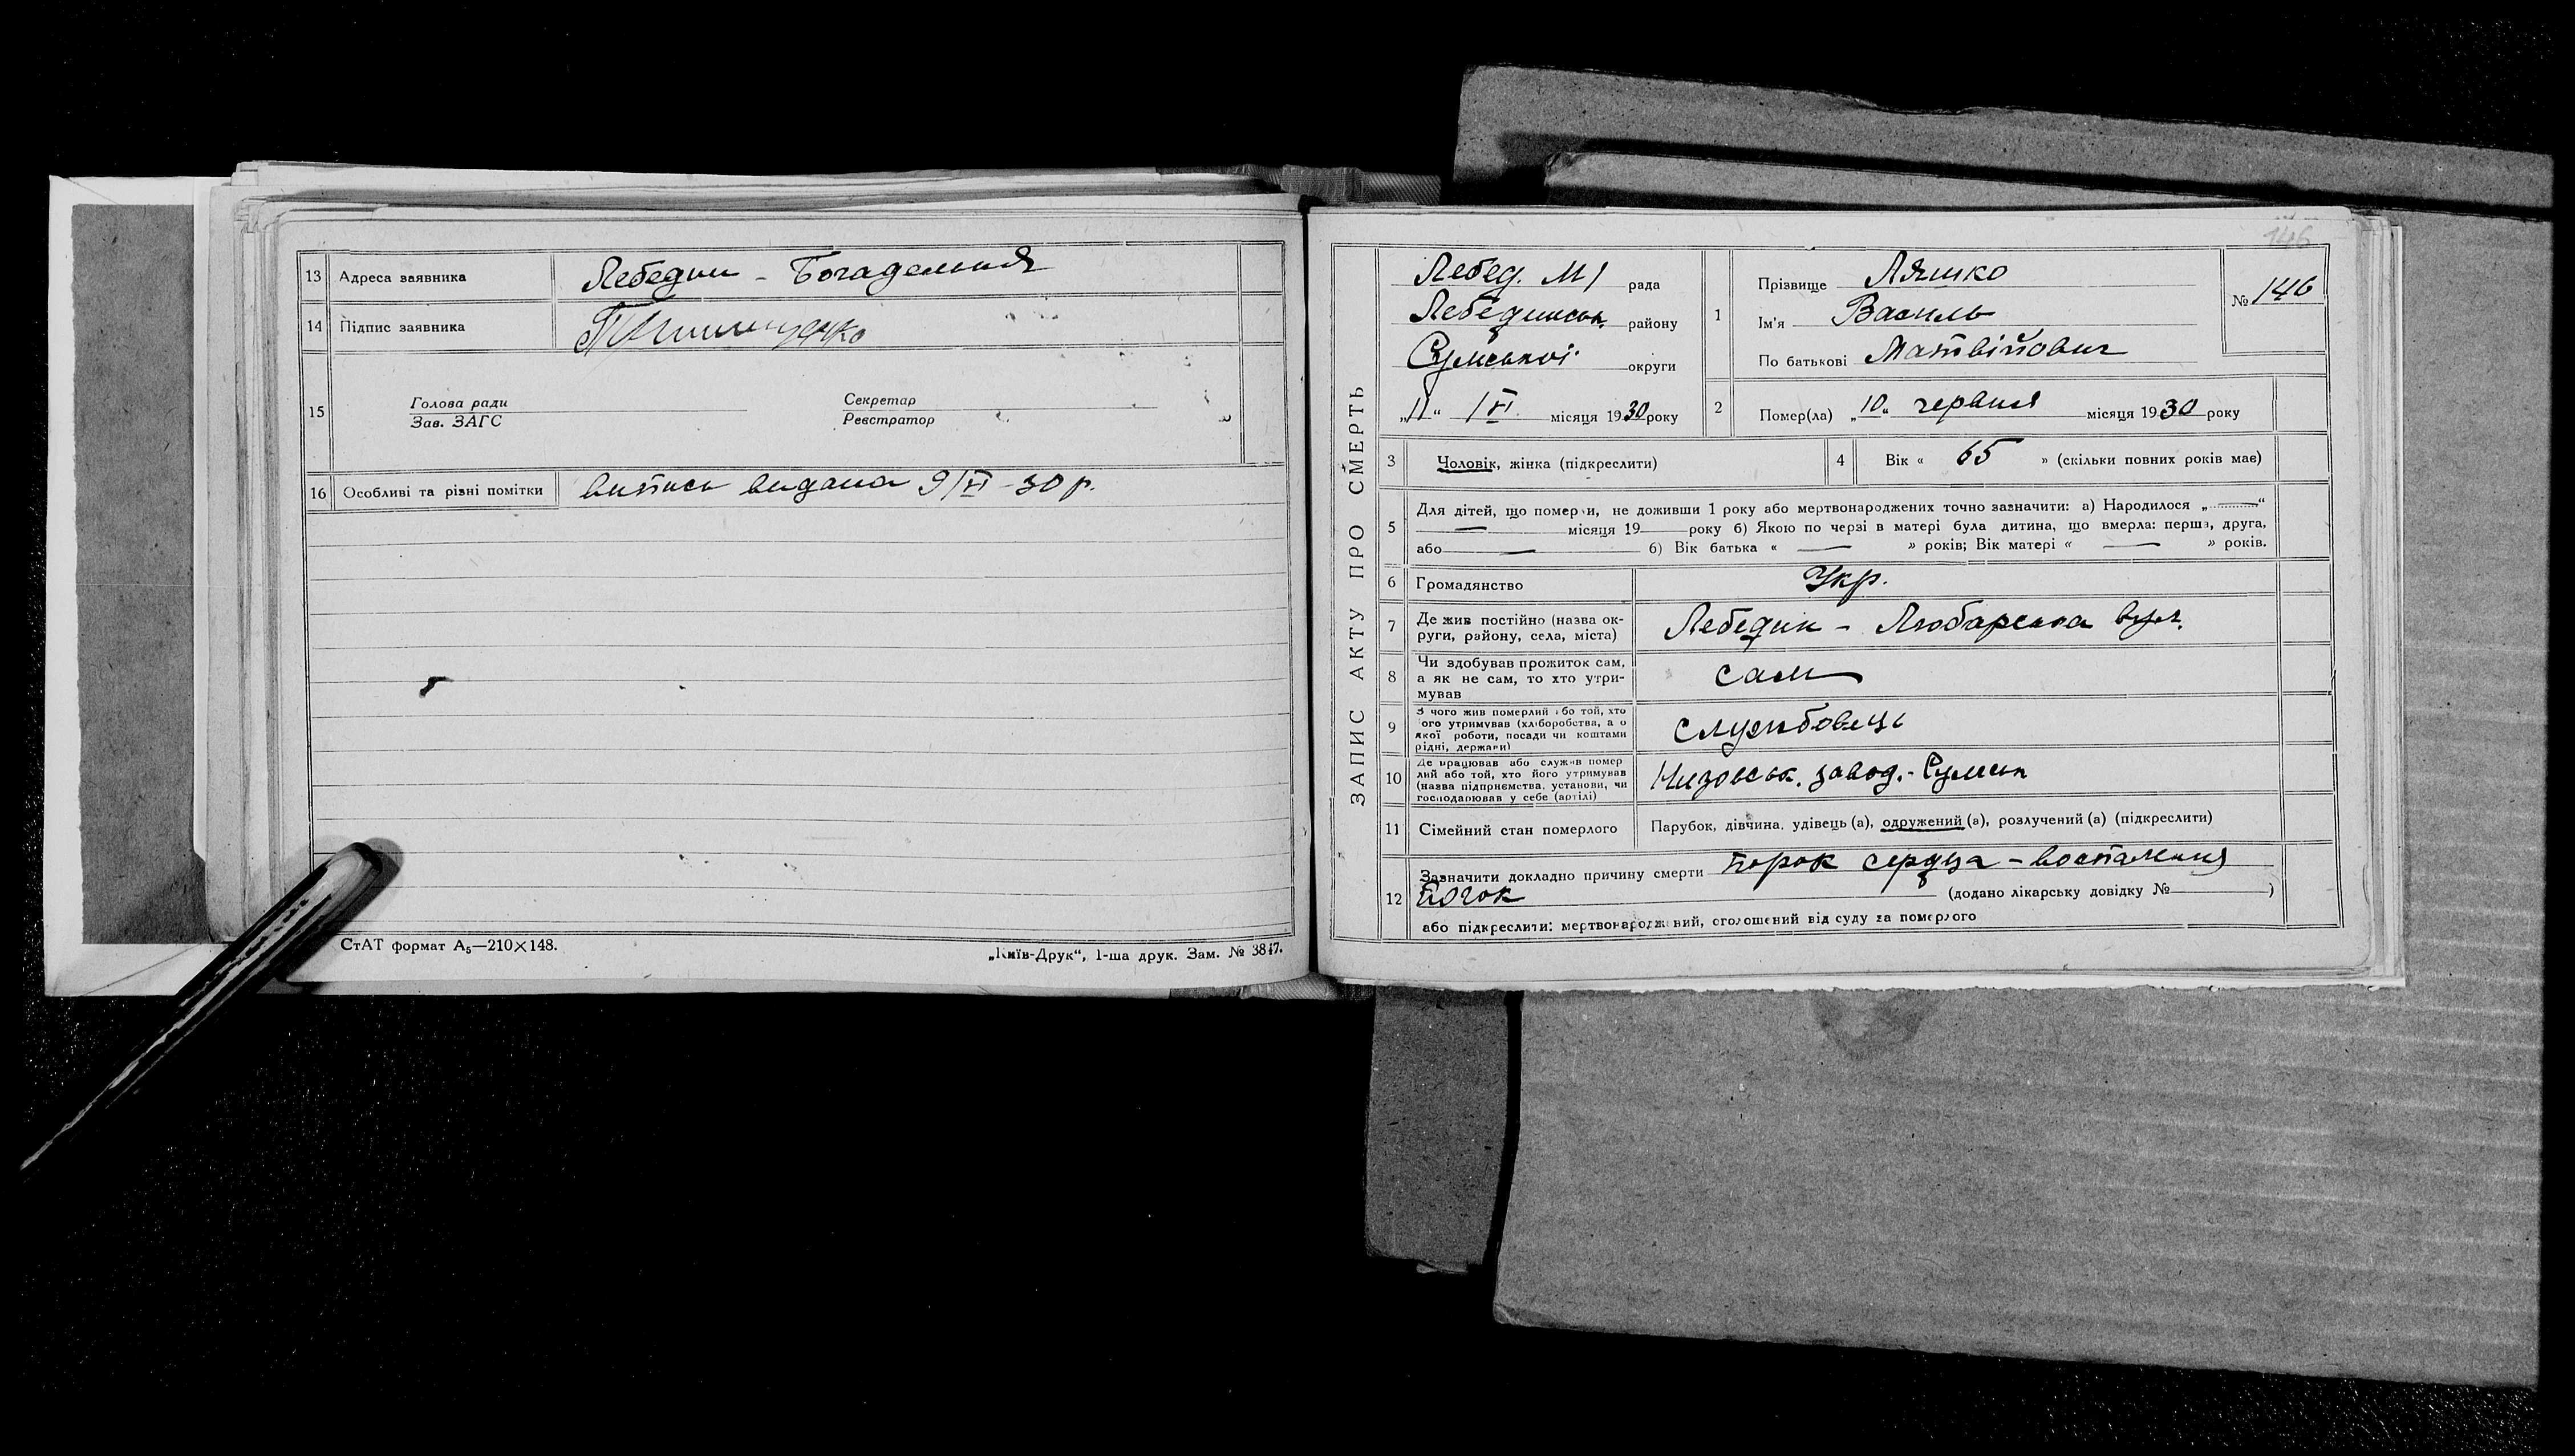 13 Адреса заявника Лебедин - Богадельня
14 Підпис заявника
15 Голова ради Секретар
Зав. ЗАГС Реєстратор
16 Особливі та різні помітки випись видана 9/VI - 30 р.
СтАТ формат А5—210×148.
„Київ-Друк“, 1-ша друк. Зам. № 3847.
146
ЗАПИС АКТУ ПРО СМЕРТЬ
Лебед. М/ рада
Лебединськ. району
Сумської округи
„11“ /VI місяця 1930 року
1 Прізвище Ляшко
Ім'я Василь
По батькові Матвійович
№ 146
2 Помер(ла) „10“ червня місяця 1930 року
3 Чоловік, жінка (підкреслити)
4 Вік « 65 » (скільки повних років має)
5 Для дітей, що померли, не доживши 1 року або мертвонароджених точно зазначити: а) Народилося „ — “
— місяця 19 року б) Якою по черзі в матері була дитина, що вмерла: перша, друга,
або — б) Вік батька « — » років; Вік матері « — » років.
6 Громадянство Укр.
7 Де жив постійно (назва ок-
руги, району, села, міста) Лебедин - Любарська вул.
8 Чи здобував прожиток сам,
а як не сам, то хто утри-
мував сам
9 З чого жив померлий або той, хто
його утримував (хліборобства, а о
якої роботи, посади чи коштами
рідні, держави) службовець
10 Де працював або служив помер
лий або той, хто його утримував
(назва підприємства, установи, чи
господарював у себе (артілі) Низовськ. завод. - Сумськ
11 Сімейний стан померлого Парубок, дівчина, удівець (а), одружений (а), розлучений (а) (підкреслити)
12 Зазначити докладно причину смерти порок сердца - воспаления
почок (додано лікарську довідку № )
або підкреслити: мертвонароджений, оголошений від суду за померлого